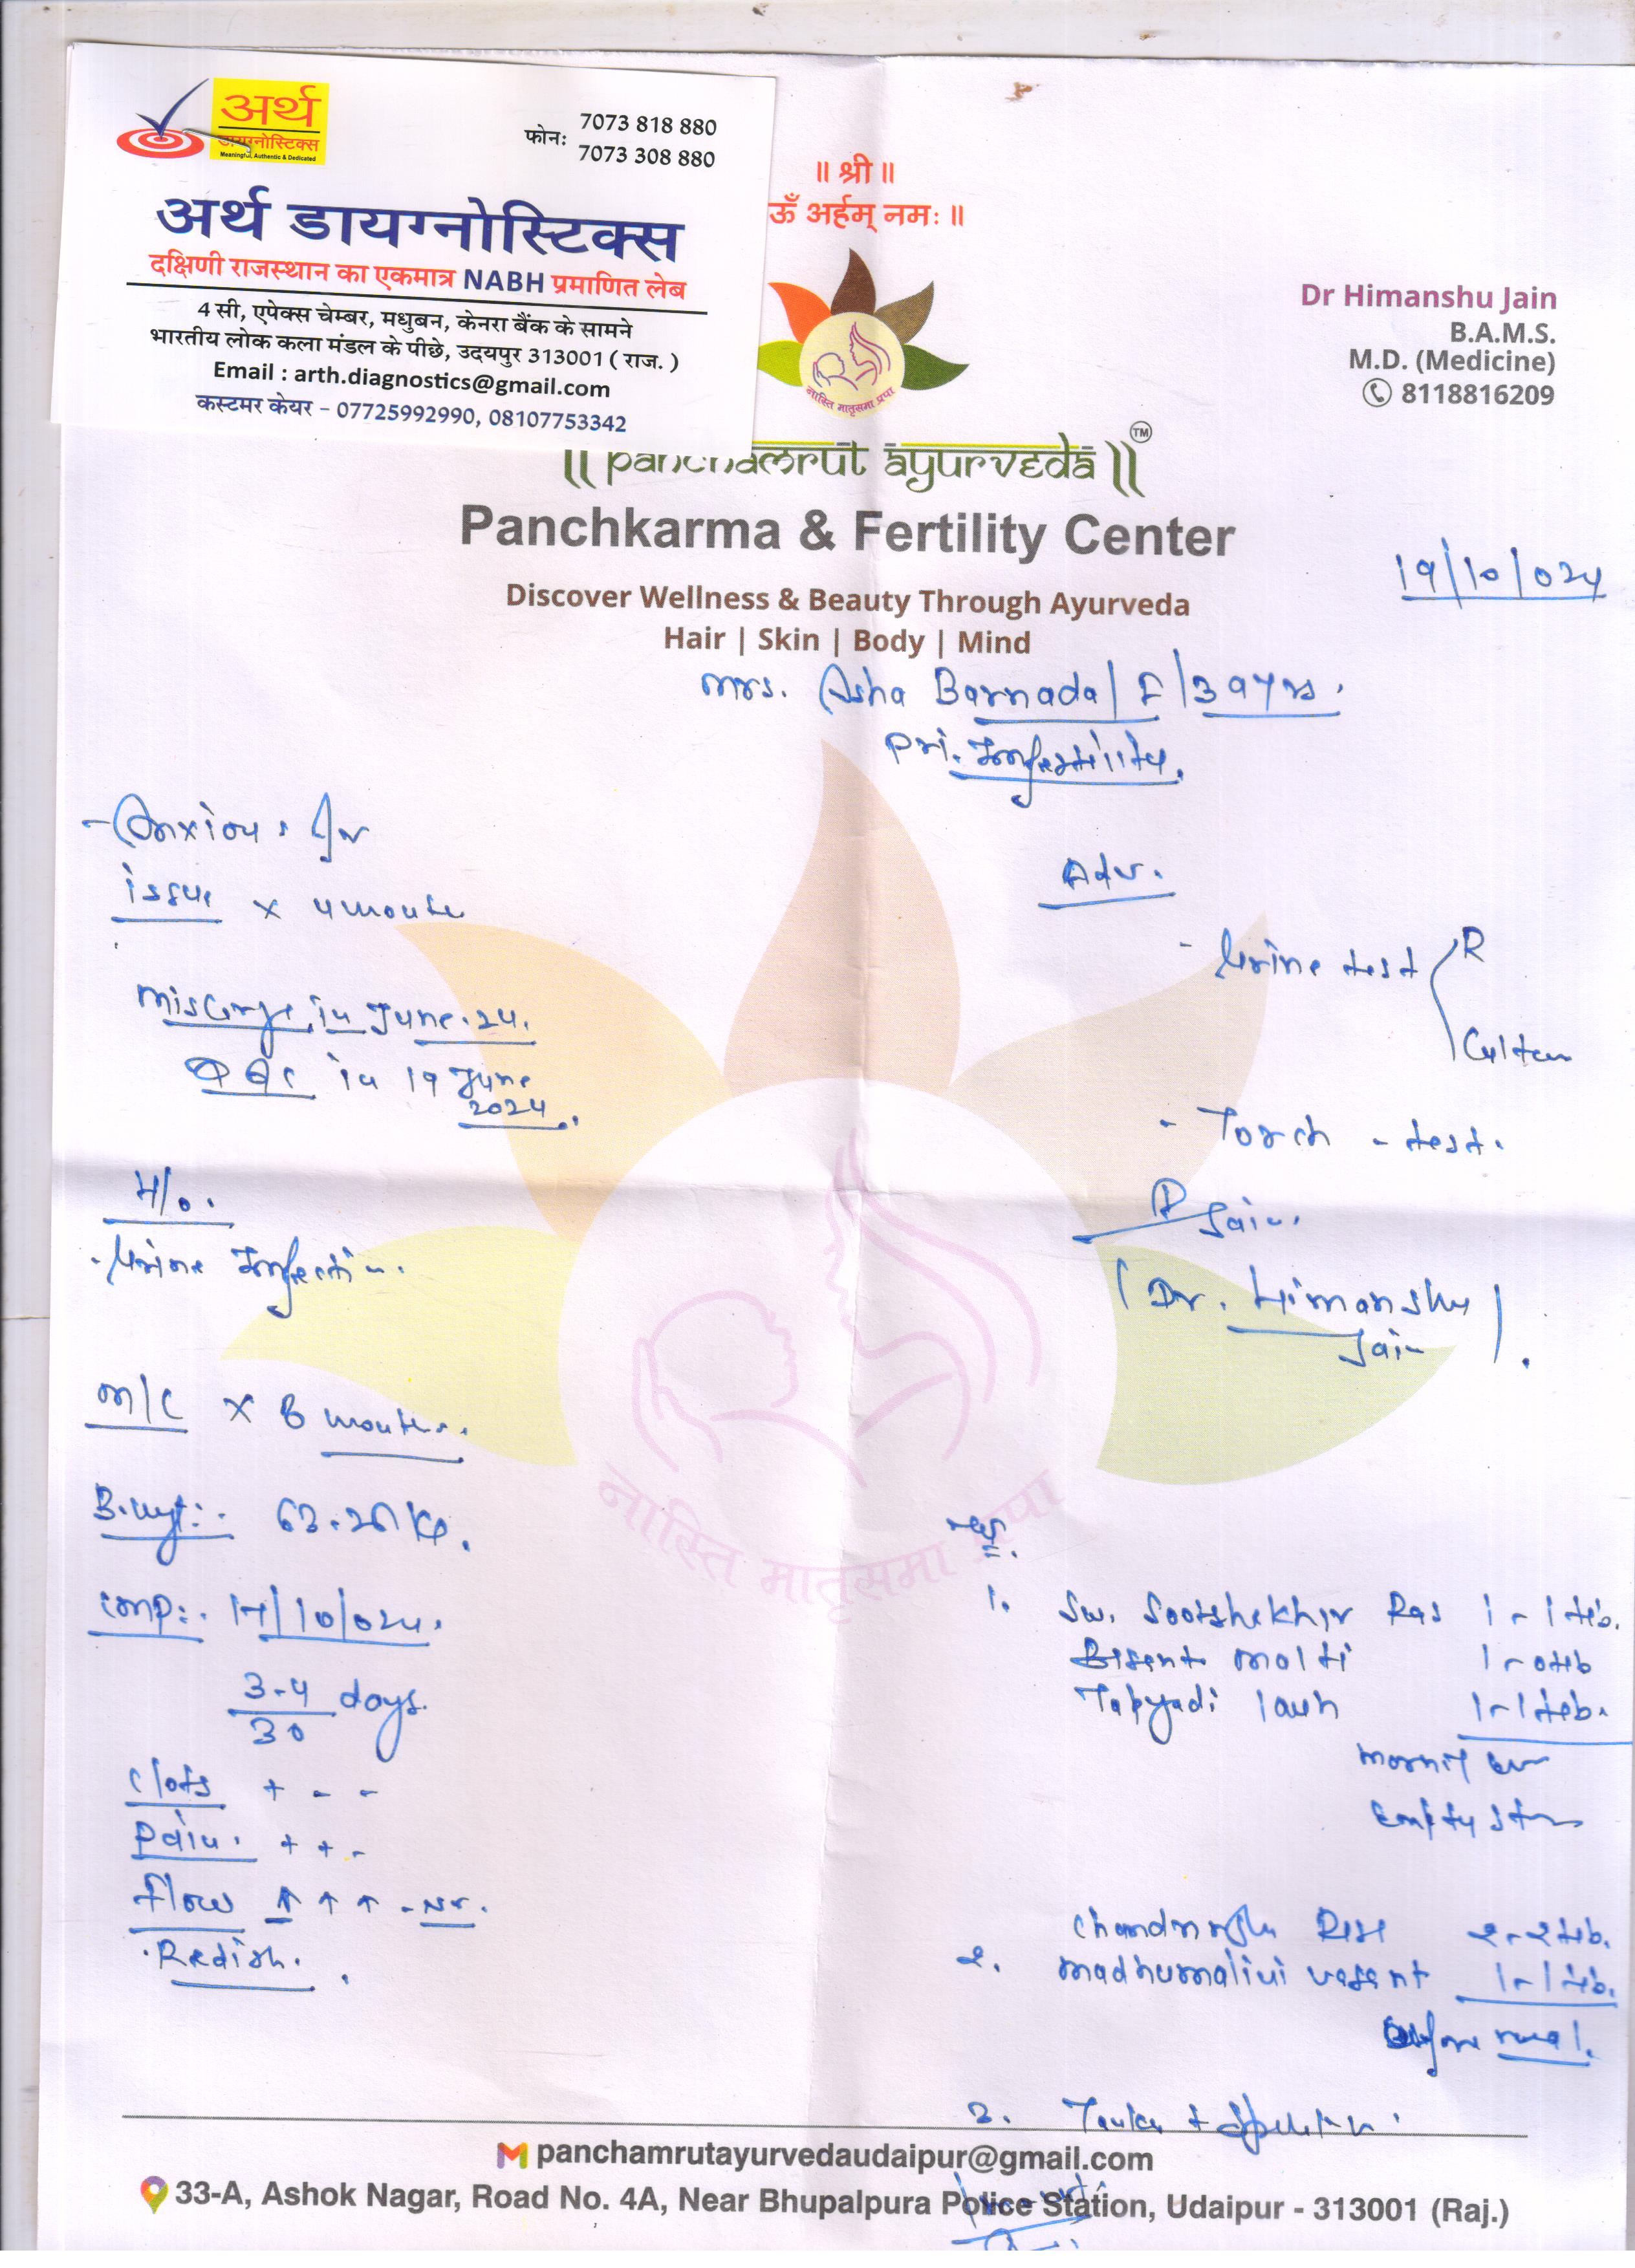 अर्थ
डायग्नोस्टिक्स
Meaningful, Authentic & Dedicated
फोन: 7073 818 880
7073 308 880
अर्थ डायग्नोस्टिक्स
दक्षिणी राजस्थान का एकमात्र NABH प्रमाणित लेब
4 सी, एपेक्स चेम्बर, मधुबन, केनरा बैंक के सामने
भारतीय लोक कला मंडल के पीछे, उदयपुर 313001 ( राज. )
Email : arth.diagnostics@gmail.com
कस्टमर केयर - 07725992990, 08107753342
॥ श्री ॥
ॐ अर्हम् नमः ॥
नास्ति मातृसमा प्रपा
Dr Himanshu Jain
B.A.M.S.
M.D. (Medicine)
8118816209
|| panchamrut ayurveda || TM
Panchkarma & Fertility Center
Discover Wellness & Beauty Through Ayurveda
Hair | Skin | Body | Mind
19/10/024
Mrs. Asha Barnada / F / 39 yrs.
Pri. Infertility.
- Anxious for
issue x 4 month
in June. 24.
in 19 June
2024.
H/o.
- Urine Infection.
M/C x 6 months.
B.wyt:- 63.26 Kg.
LMP:- 17/10/024.
3-4 days
30
Clots + - -
Pain. + + -
Flow ↑ ↑ ↑ -
Redish.
Adv.
- Urine test R
Culture
- Torch - test.
Jain.
( Dr. Himanshu
Jain ).
नास्ति मातृसमा प्रपा
1. Sw. Sootshekhr Ras 1-1 tab.
malti 1-0 tab
Tapyadi lauh 1-1 tab.
Empty
2-2 tab.
2. madhumalini vasant 1-1 tab.
Before meal.
3.
panchamrutayurvedaudaipur@gmail.com
33-A, Ashok Nagar, Road No. 4A, Near Bhupalpura Police Station, Udaipur - 313001 (Raj.)